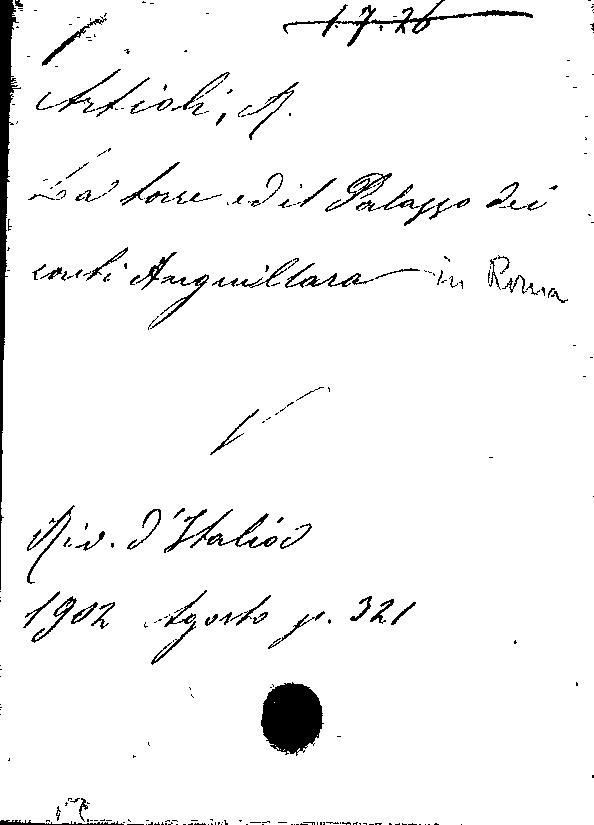 1.7.26
Artioli, R.
La torre ed il Palazzo dei
conti Anguillara in Roma
Riv. d'Italia
1902 Agosto p. 321